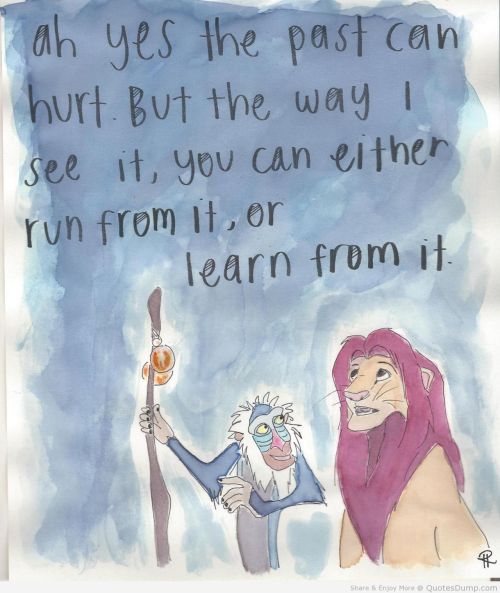 ah yes the past can
hurt. But the way I
see it, you can either
run from it, or
learn from it.
Share & Enjoy More @ QuotesDump.com